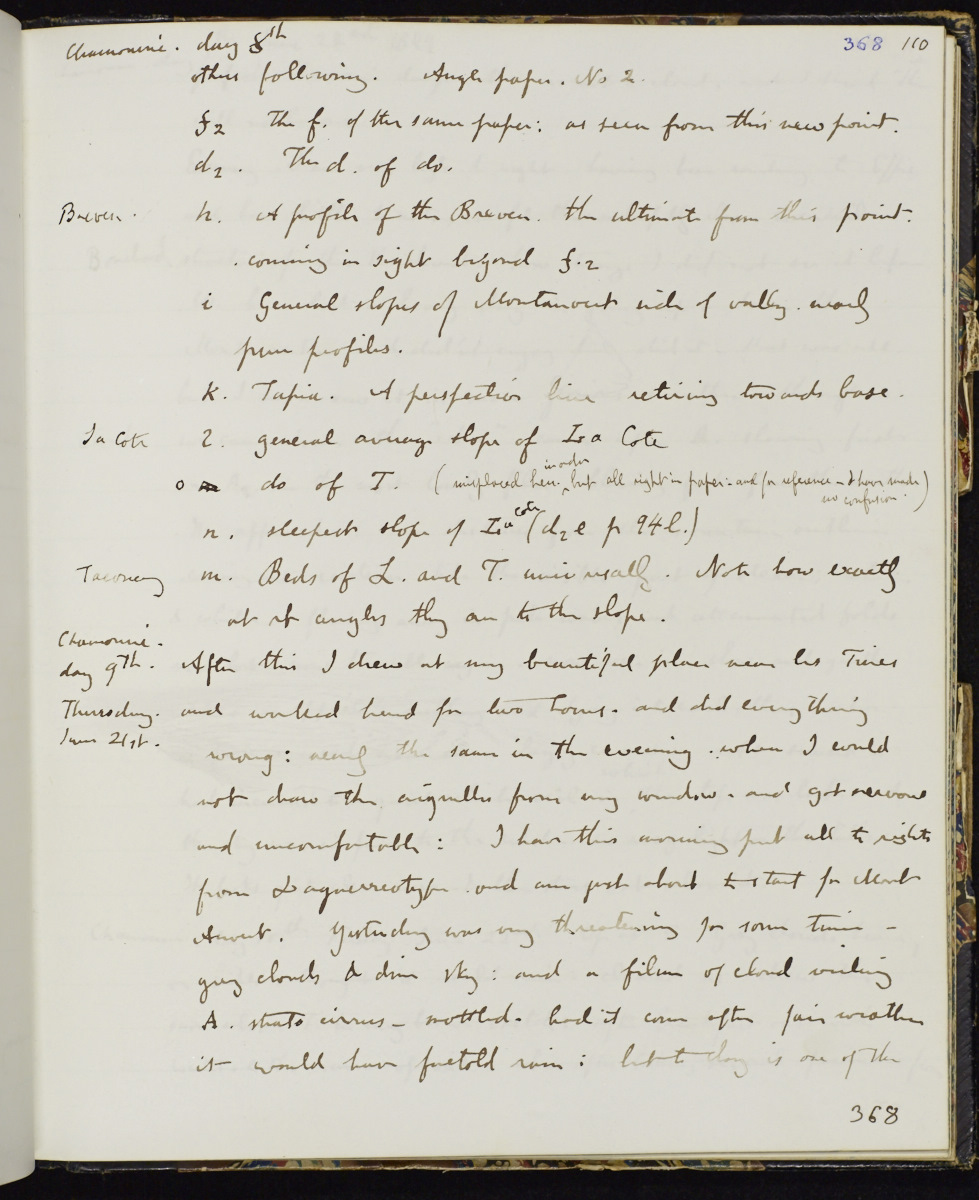 Chamounie. day 8th 368 110
others following. Angle paper. No 2.
f2 The f. of the same paper: as seen from this new point.
d2. The d. of do.
Breven. h. A profile of the Breven. the ultimate from this point.
coming in sight beyond f.2
i General slopes of Montanvert side of valley. nearly
pure profiles.
k. Tapia. A perspective line retiring towards base.
La Cote l. general average slope of La Cote
o m do of T. (misplaced here in order but all right in paper: and for reference – I have made no confusion.)
n. steepest slope of La Cote (d2 e p 94 l.)
Taconay m. Beds of L. and T. universally. Note how exactly
at rt angles they are to the slope.
Chamounie.
day 9th. After this I drew at my beautiful place near les Tines
Thursday. and worked hard for two hours. and did everything
June 21st. wrong: nearly the same in the evening. when I could
not draw the aiguilles from my window. and got nervous
and uncomfortable: I have this morning put all to rights
from Daguerreotype. and am just about to start for Mont
Anvert. Yesterday was very threatening for some time –
grey clouds & dim sky: and a film of cloud veiling
A. strato cirrus – mottled. had it come after fair weather
it would have foretold rain: but to day is one of the
368